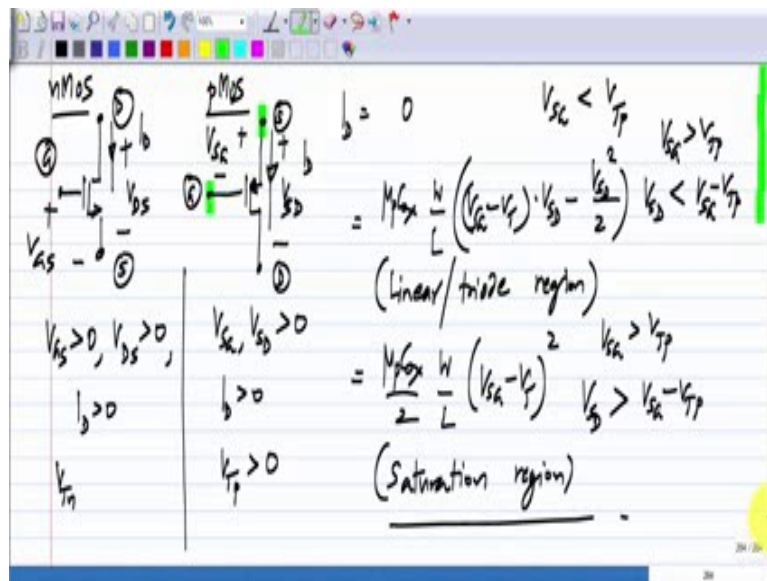 nMOS
D
G
+ I_D
V_DS
+ V_GS -
-
S
V_GS > 0, V_DS > 0,
I_D > 0
V_Tn
pMOS
S
V_SG +
+ I_D
-
G
V_SD
-
D
V_SG, V_SD > 0
I_D > 0
V_Tp > 0
I_D = 0 V_SG < V_Tp
V_SG > V_Tp
= μ_p C_ox W/L ((V_SG - V_T) · V_SD - V_SD²/2) V_SD < V_SG - V_Tp
(Linear/triode region)
= μ_p C_ox/2 W/L (V_SG - V_T)² V_SG > V_Tp
V_SD > V_SG - V_Tp
(Saturation region)